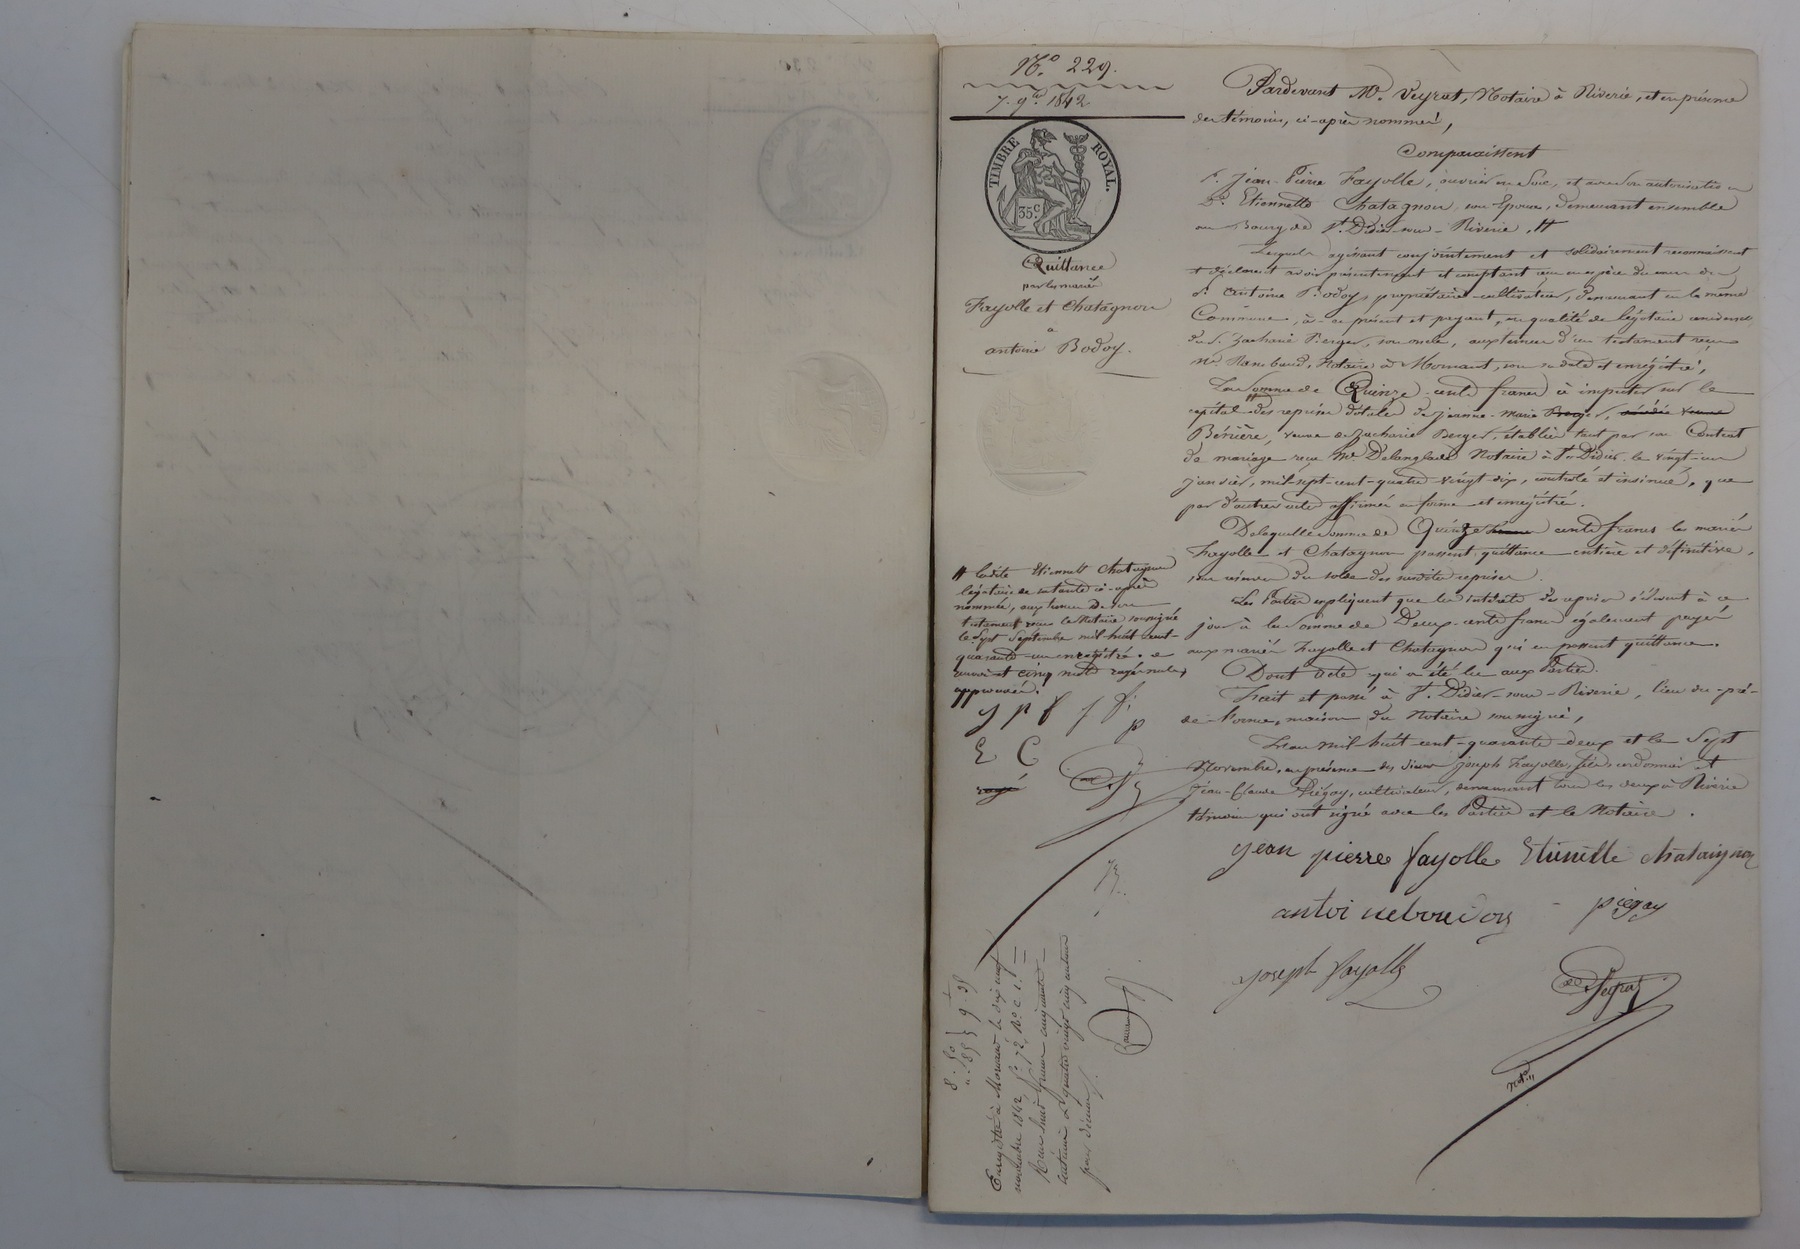 N.° 229.
7. 9.bre 1842
TIMBRE ROYAL.
35 C.
Quittance
par les mariés
Fayolle et Chatagnon
à
antoine Bodoy.
Pardevant Me. Veyrat, Notaire à Riverie, et en présence
des témoins, ci-après nommés,
Comparaissent
1.° Jean-Pierre Fayolle, ouvrier en soie, et sous son autorisation
2.° Etiennette Chatagnon son Epouse, demeurant ensemble
au Bourg de St. Didier-sous-Riverie. #
Lesquels agissant conjointement et solidairement reconnaissent
et déclarent avoir présentement et comptant reçu en espèces du cours du
Sr. antoine Bodoy, propriétaire-cultivateur, demeurant en la même
Commune, à-ce présent et payant, en qualité de légataire universel
du Sr. Zacharie Berger, son oncle, aux termes d'un testament reçu
Me. Rambaud, Notaire à Mornant, sous sa date et enregistré,
La somme de Quinze-cents francs à imputer sur le
capital des reprises dotales de jeanne-marie Berger, décédée veuve
Bérière, veuve de Zacharie Berger, établies tant par son Contrat
de mariage reçu Me. Delanglade Notaire à St. Didier le vingt-un
janvier, mil-sept-cent-quatre-vingt-dix, contrôlé et insinué, que
par d'autres actes affirmés en forme et enregistrés.
De laquelle somme de Quinze cents francs les mariés
Fayolle et Chatagnon passent quittance entière et définitive,
sous réserve du solde des susdites reprises.
Les Parties expliquent que les intérêts des reprises s'élèvent à ce
jour à la somme de Deux-cents francs également payés
aux mariés Fayolle et Chatagnon qui en passent quittance.
Dont acte qui a été lu aux Parties.
Fait et passé à St. Didier-sous-Riverie, lieu du pré-
de-Forme, maison du Notaire soussigné,
L'an mil-huit-cent-quarante-deux et le Sept
Novembre, en présence des sieurs Joseph Fayolle, fils, cordonnier et
Jean-Claude Piégay, cultivateur, demeurant tous les deux à Riverie
témoins qui ont signé avec les Parties et le Notaire.
# ladite Etiennette Chatagnon
légataire de sa tante ci-après
nommée, aux termes de son
testament reçu le Notaire soussigné
le sept Septembre mil-huit-cent-
quarante-un enregistré.
et cinq mots rayés nuls
approuvés.
J p f J f
p
E C
rayé
jean pierre fayolle Etiennette chataignon
antoine boudoy piegay
joseph fayolle
Veyrat
not.re
8. 50
" 85 } 9-35
Enregistré à Mornant le dix neuf
novembre 1842, f.° 72, R.° c. 1.
Reçu huit francs cinquante
centimes et quatre vingt cinq centimes
pour décime.